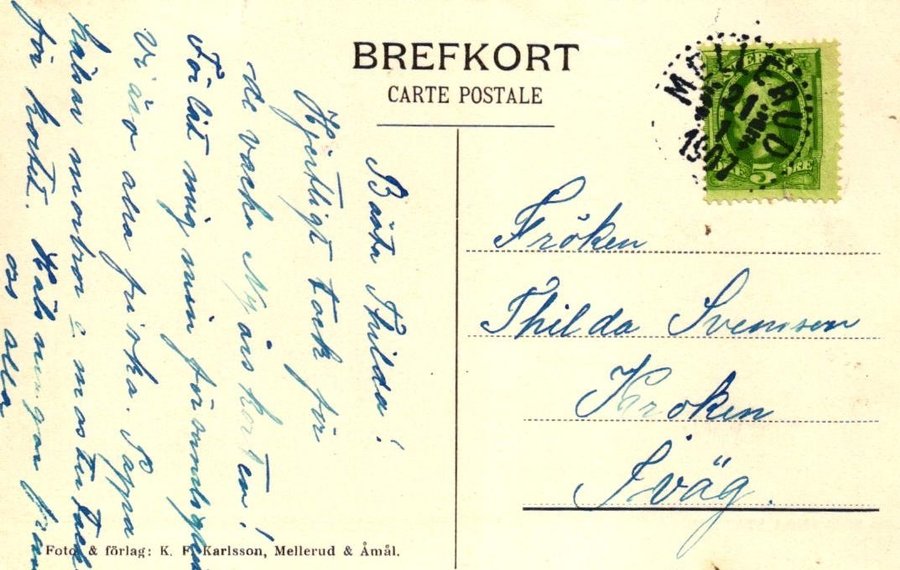 BREFKORT
CARTE POSTALE
MELLERUD
21
1
1907
5
Bästa Thilda!
Hjertligt tack för
de vackra Nyårskorten!
Förlåt mig min försumlighet
Vi äro alla friska. Pappa
hälsar morbror o. moster tack
för kortet. Hälsningar från
oss alla
Fröken
Thilda Svenson
Kroken
Iväg.
Foto. & förlag: K. F. Karlsson, Mellerud & Åmål.